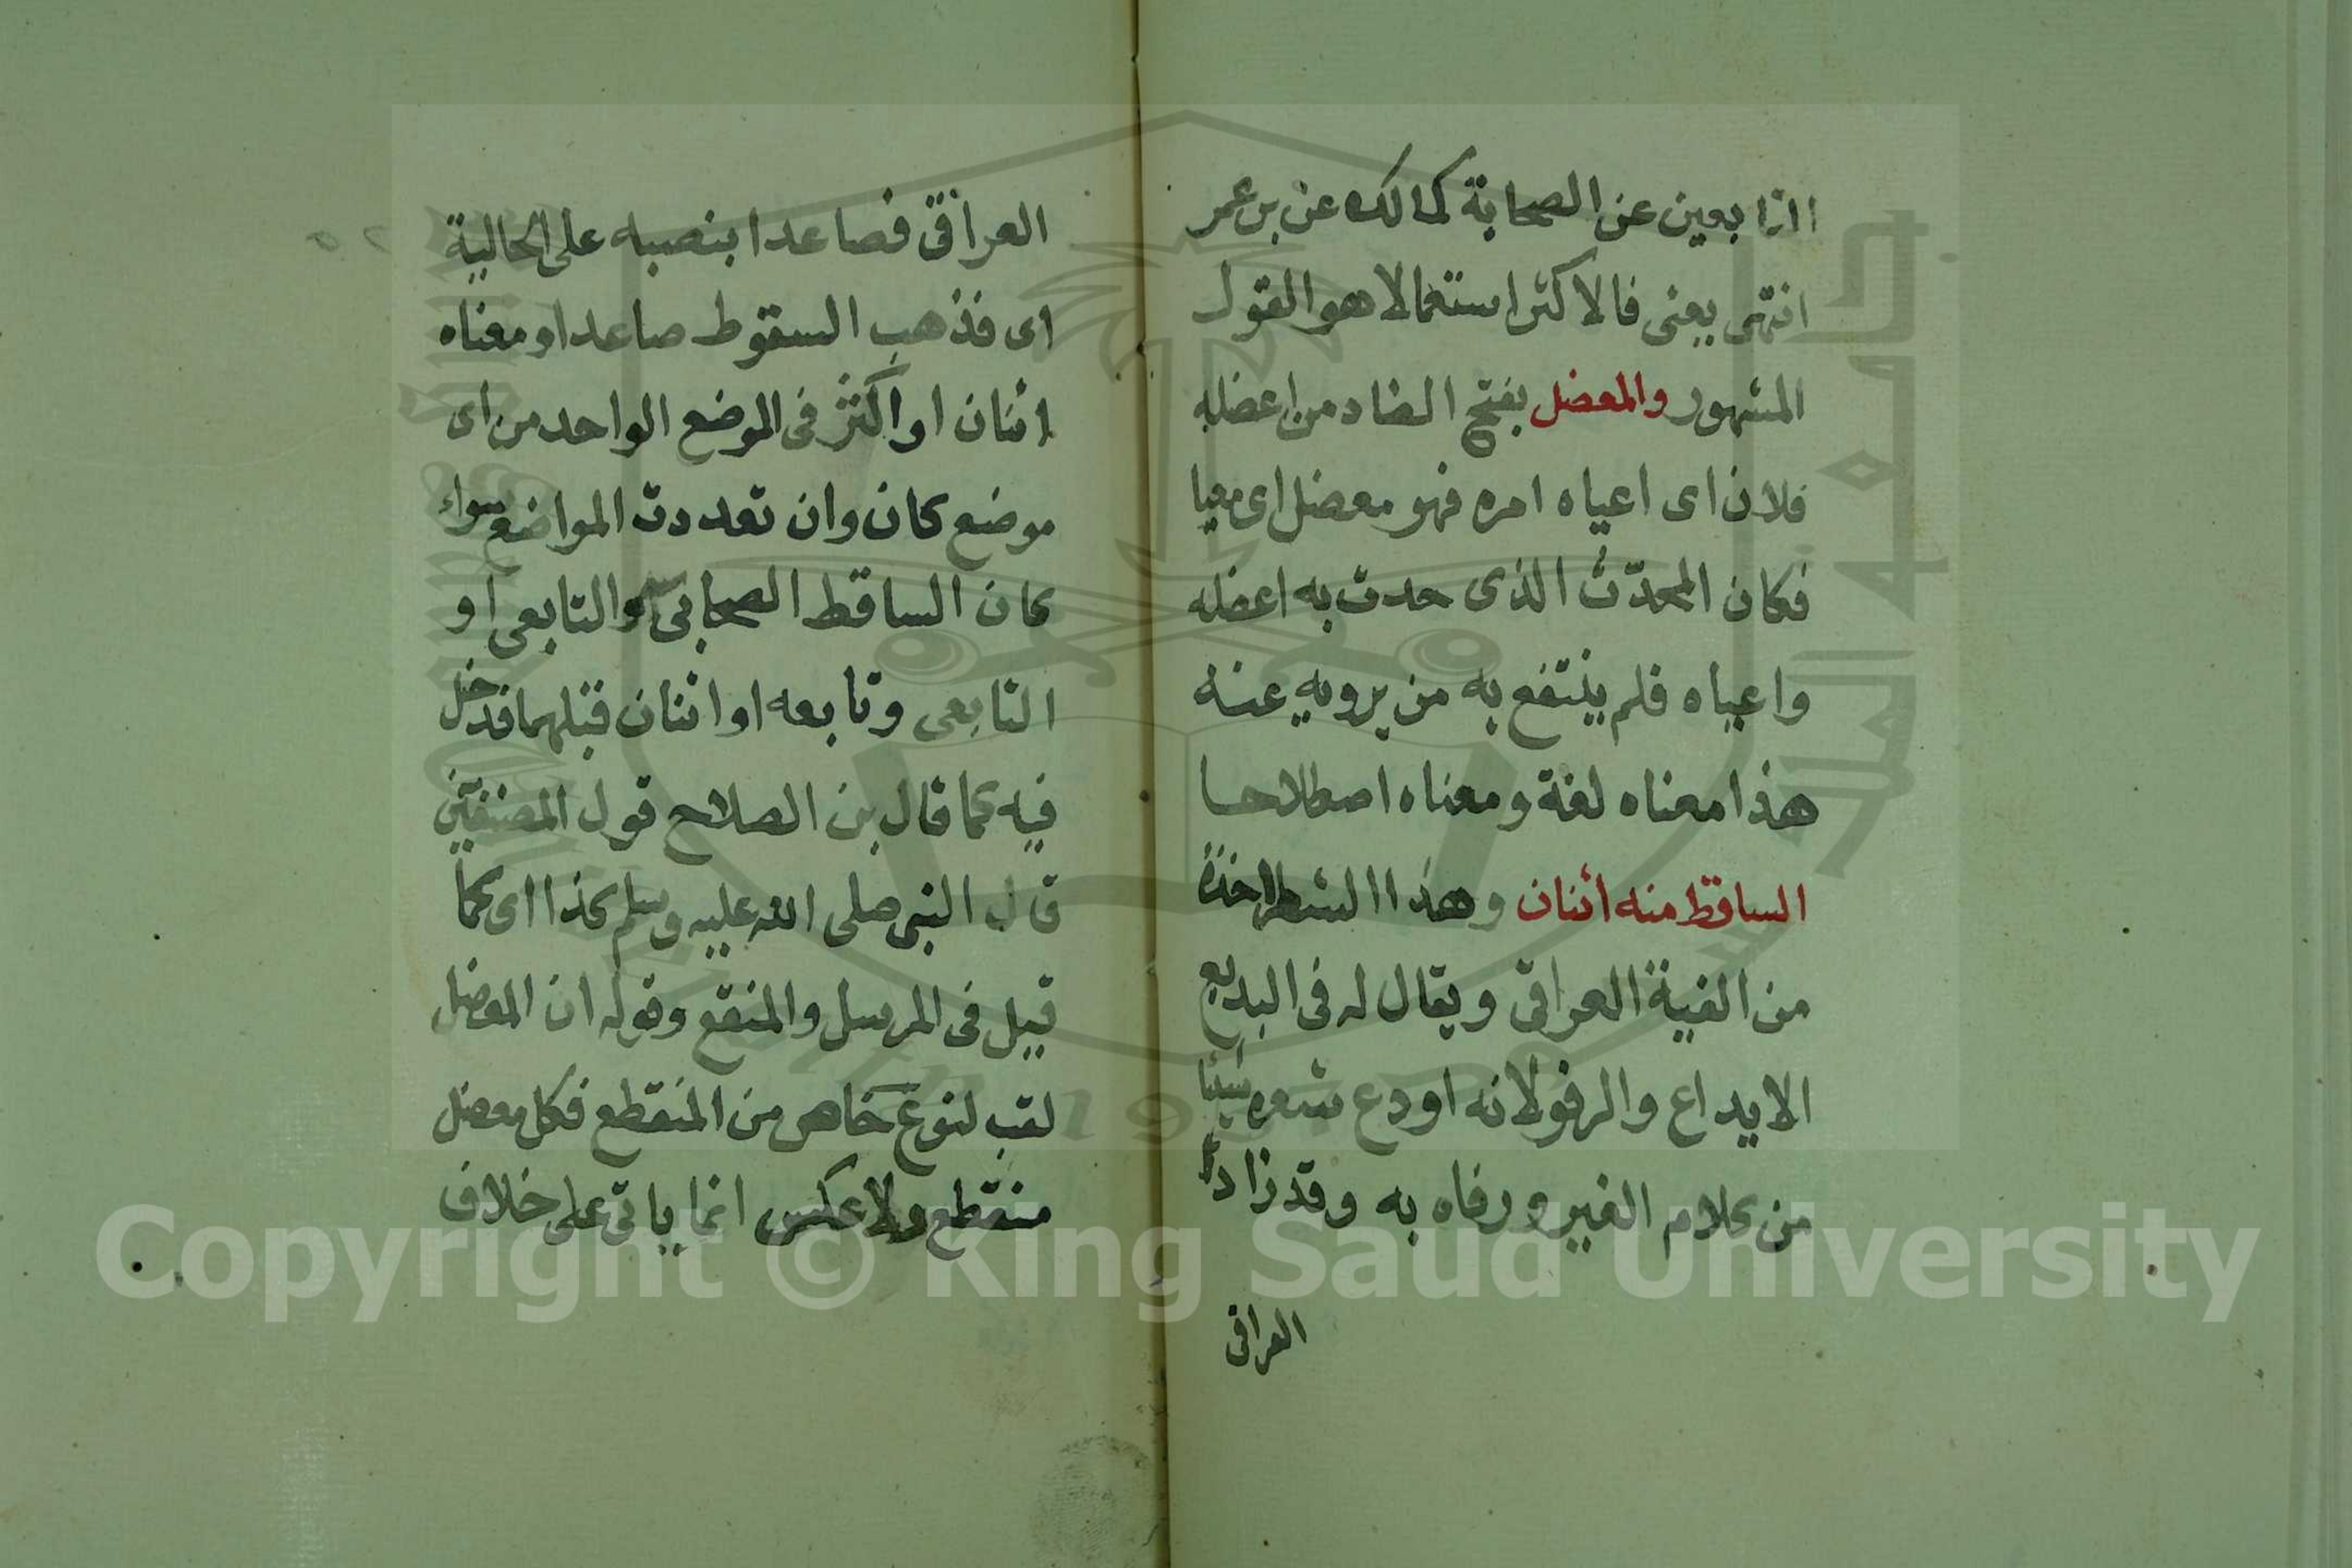 التابعين عن الصحابة كمالك عن بن عمر
انتهى يعنى فالاكثر استعمالا هو القول
المشهور والمعضل بفتح الضاد من اعضله
فلان اى اعياه امره فهو معضل اى معيا
فكان المحدّث الذى حدث به اعضله
واعياه فلم ينتفع به من يرويه عنه
هذا معناه لغة ومعناه اصطلاحا
الساقط منه اثنان وهذا الشطر اخذة
من الفية العراقى ويقال له فى البديع
الايداع والرفو لانه اودع شعره شيئا
من كلام الغير ورفاه به وقد زاد
العراقى
العراقى فصاعدا بنصبه على الحالية
اى فذهب السقوط صاعدا ومعناه
اثنان او اكثر فى الموضع الواحد من اى
موضع كان وان تعددت المواضع سواء
كان الساقط الصحابى والتابعى او
التابعى وتابعه او اثنان قبلهما فدخل
فيه كما قال بن الصلاح قول المصنفين
قال النبى صلى الله عليه وسلم كذا اى كما
قيل فى المرسل والمنقع وقوله ان المعضل
لقب لنوع خاص من المنقطع فكل معضل
منقطع ولا عكس انما ياتى على خلاف
Copyright © King Saud University